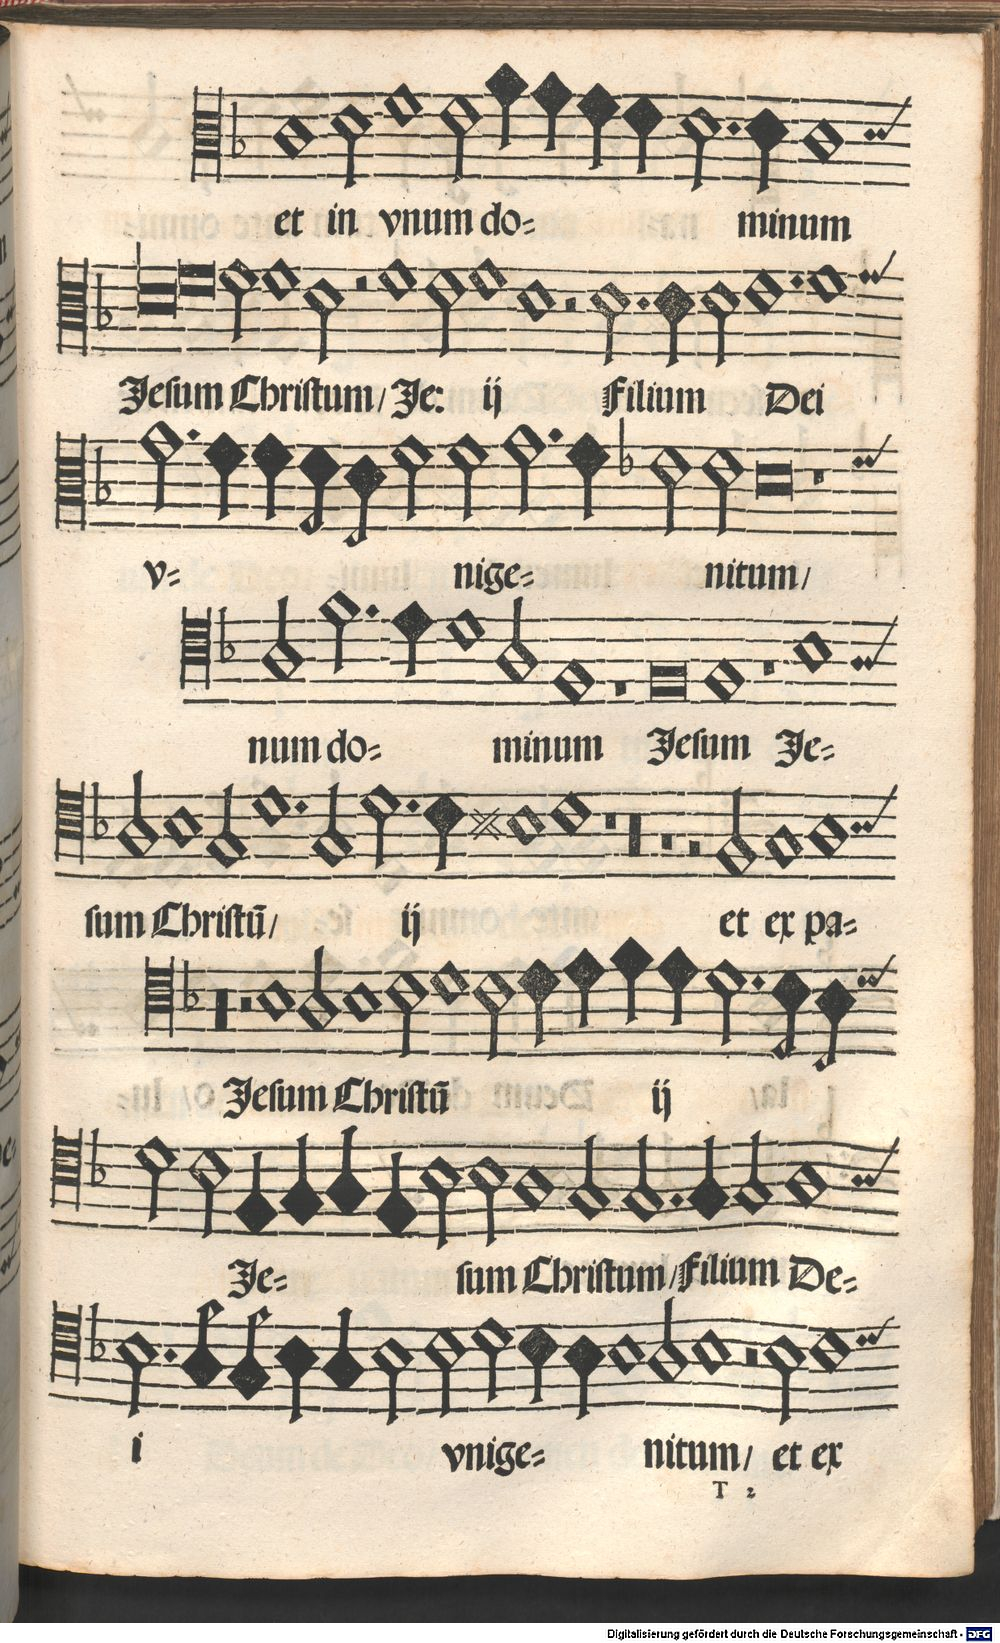 et in vnum do:
minum
Jesum Christum/ Je: ij Filium Dei
v: nige: nitum/
num do: minum Jesum Je:
sum Christū/ ij et ex pa:
Jesum Christū ij
Je: sum Christum/ Filium De:
i vnige: nitum/ et ex
T 2
Digitalisierung gefördert durch die Deutsche Forschungsgemeinschaft - DFG